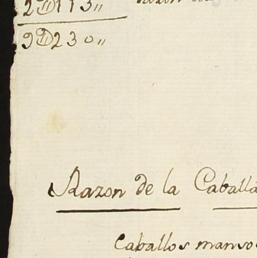 2ↀ113,,
9ↀ230,,
Razon de la Caballa
Caballos manso